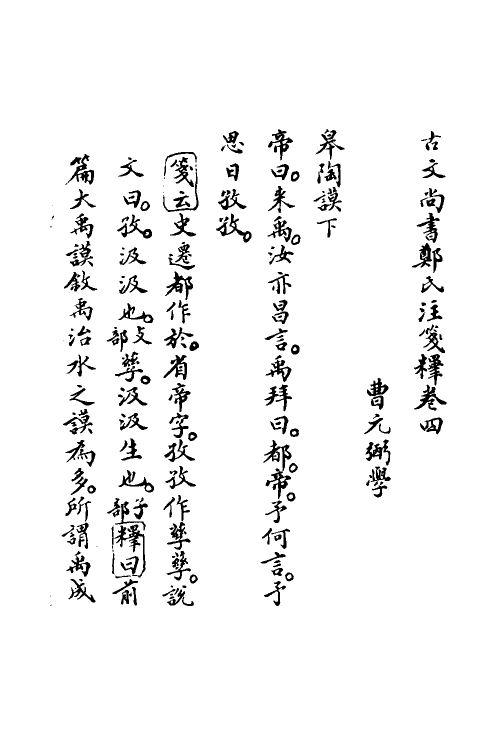 古文尚書鄭氏注箋釋卷四
曹元弼學
皋陶謨下
帝曰。來禹。汝亦昌言。禹拜曰。都。帝。予何言。予
思日孜孜。
箋云史遷都作於。省帝字。孜孜作孳孳。說
文曰。孜。汲汲也。攴部孳。汲汲生也。子部釋曰前
篇大禹謨敘禹治水之謨為多。所謂禹成